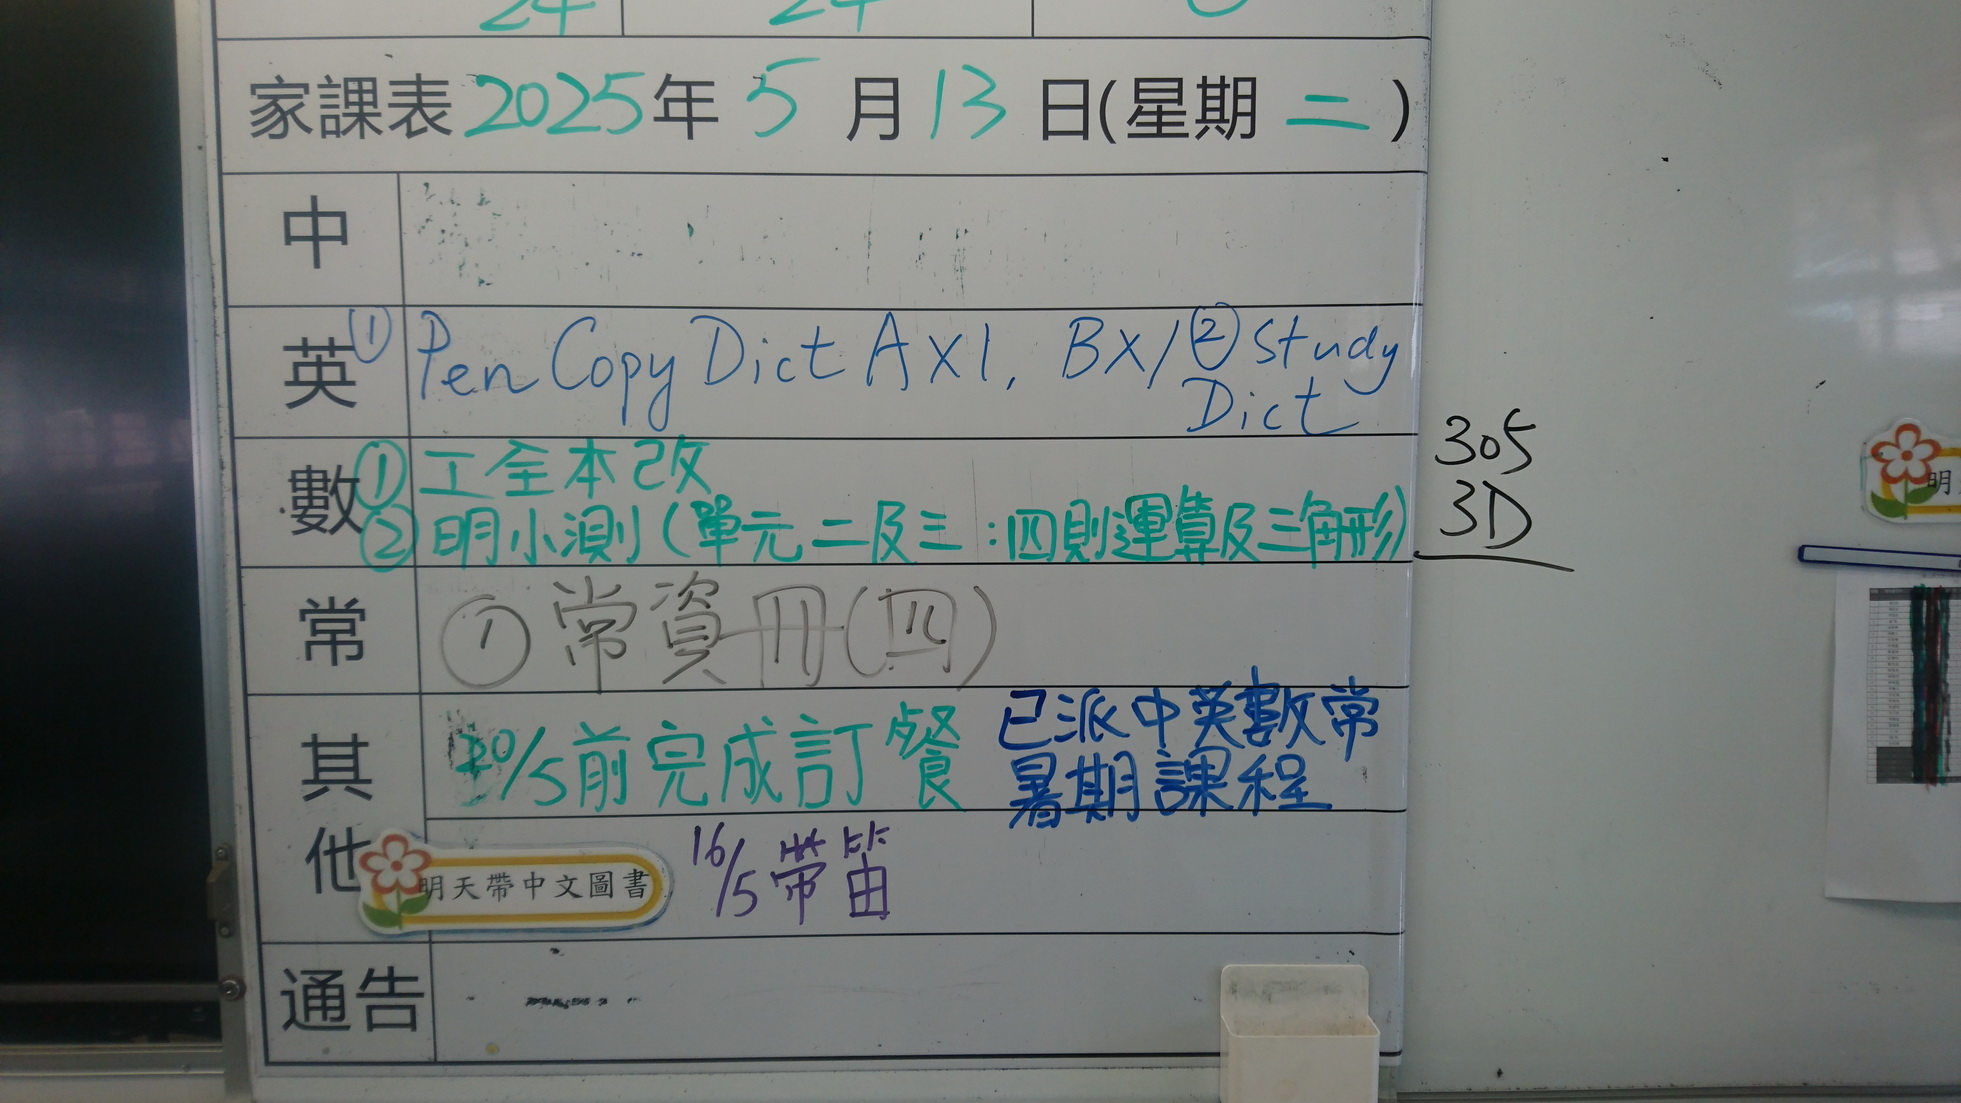 24 24
家課表 2025年 5 月 13 日(星期 二 )
中
英 ① Pen Copy Dict A X1, B X1 ② Study
Dict
數 ① 工全本改
② 明小測 (單元 二及三 : 四則運算及三角形)
305
3D
常 ① 常資冊(四)
其他
20/5前完成訂餐
已派中英數常
暑期課程
明天帶中文圖書
16/5 帶笛
通告
明